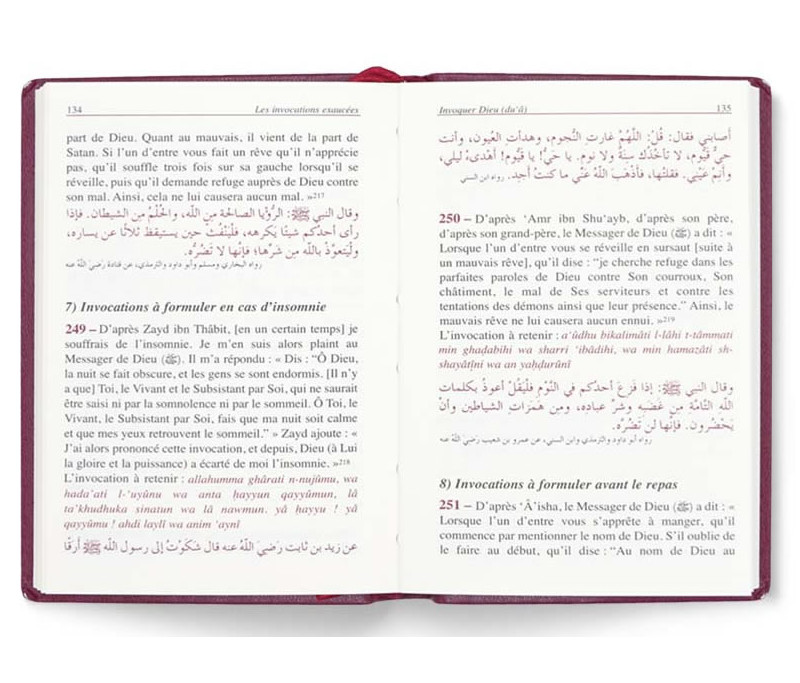 134 Les invocations exaucées
part de Dieu. Quant au mauvais, il vient de la part de
Satan. Si l'un d'entre vous fait un rêve qu'il n'apprécie
pas, qu'il souffle trois fois sur sa gauche lorsqu'il se
réveille, puis qu'il demande refuge auprès de Dieu contre
son mal. Ainsi, cela ne lui causera aucun mal. »217
وقال النبي ﷺ: الرُّؤيا الصالحة مِن الله، والحُلْمُ مِن الشيطان. فإذا
رأى أحدكم شيئًا يَكرهه، فلْيَنْفُثْ حين يستيقظ ثلاثًا عن يساره،
ولْيَتعوَّذْ بالله مِن شرِّها؛ فإنَّها لا تَضُرُّه.
رواه البخاري ومسلم وأبو داود والترمذي، عن قتادة رضيَ اللهُ عنه
7) Invocations à formuler en cas d'insomnie
249 – D'après Zayd ibn Thâbit, [en un certain temps] je
souffrais de l'insomnie. Je m'en suis alors plaint au
Messager de Dieu (ﷺ). Il m'a répondu : « Dis : "Ô Dieu,
la nuit se fait obscure, et les gens se sont endormis. [Il n'y
a que] Toi, le Vivant et le Subsistant par Soi, qui ne saurait
être saisi ni par la somnolence ni par le sommeil. Ô Toi, le
Vivant, le Subsistant par Soi, fais que ma nuit soit calme
et que mes yeux retrouvent le sommeil." » Zayd ajoute : «
J'ai alors prononcé cette invocation, et depuis, Dieu (à Lui
la gloire et la puissance) a écarté de moi l'insomnie. »218
L'invocation à retenir : allahumma ghârati n-nujûmu, wa
hada'ati l-'uyûnu wa anta ḥayyun qayyûmun, lâ
ta'khudhuka sinatun wa lâ nawmun. yâ ḥayyu ! yâ
qayyûmu ! ahdi laylî wa anim 'aynî
عن زيد بن ثابت رَضيَ اللهُ عنه قال شكَوْتُ إلى رسول الله ﷺ أَرَقًا
Invoquer Dieu (du'â) 135
أصابني فقال: قُلْ: اللَّهُمَّ غارتِ النُّجوم، وهدأت العُيون، وأنت
حيٌّ قيُّوم، لا تأخُذك سِنةٌ ولا نوم. يا حيُّ! يا قيُّوم! أهْدئ ليلي،
وأنِمْ عَيْنِي. فقلتُها، فأذهَبَ اللهُ عنِّي ما كنتُ أجد. رواه ابن السني
250 – D'après 'Amr ibn Shu'ayb, d'après son père,
d'après son grand-père, le Messager de Dieu (ﷺ) a dit : «
Lorsque l'un d'entre vous se réveille en sursaut [suite à
un mauvais rêve], qu'il dise : "je cherche refuge dans les
parfaites paroles de Dieu contre Son courroux, Son
châtiment, le mal de Ses serviteurs et contre les
tentations des démons ainsi que leur présence." Ainsi, le
mauvais rêve ne lui causera aucun ennui. »219
L'invocation à retenir : a'ûdhu bikalimâti l-lâhi t-tâmmati
min ghaḍabihi wa sharri 'ibâdihi, wa min hamazâti sh-
shayâṭîni wa an yaḥḍurûnî
وقال النبي ﷺ: إذا فَزِعَ أحدكم في النَّوْم فَلْيَقُلْ أعوذُ بكلمات
الله التَّامَّة مِن غَضَبِه وشرِّ عبادِه، ومِن هَمَزَاتِ الشياطين وأنْ
يَحْضُرون. فإنَّها لن تَضُرَّه.
رواه أبو داود والترمذي وابن السني، عن عمرو بن شعيب رضيَ اللهُ عنه
8) Invocations à formuler avant le repas
251 – D'après 'Â'isha, le Messager de Dieu (ﷺ) a dit : «
Lorsque l'un d'entre vous s'apprête à manger, qu'il
commence par mentionner le nom de Dieu. S'il oublie de
le faire au début, qu'il dise : "Au nom de Dieu au